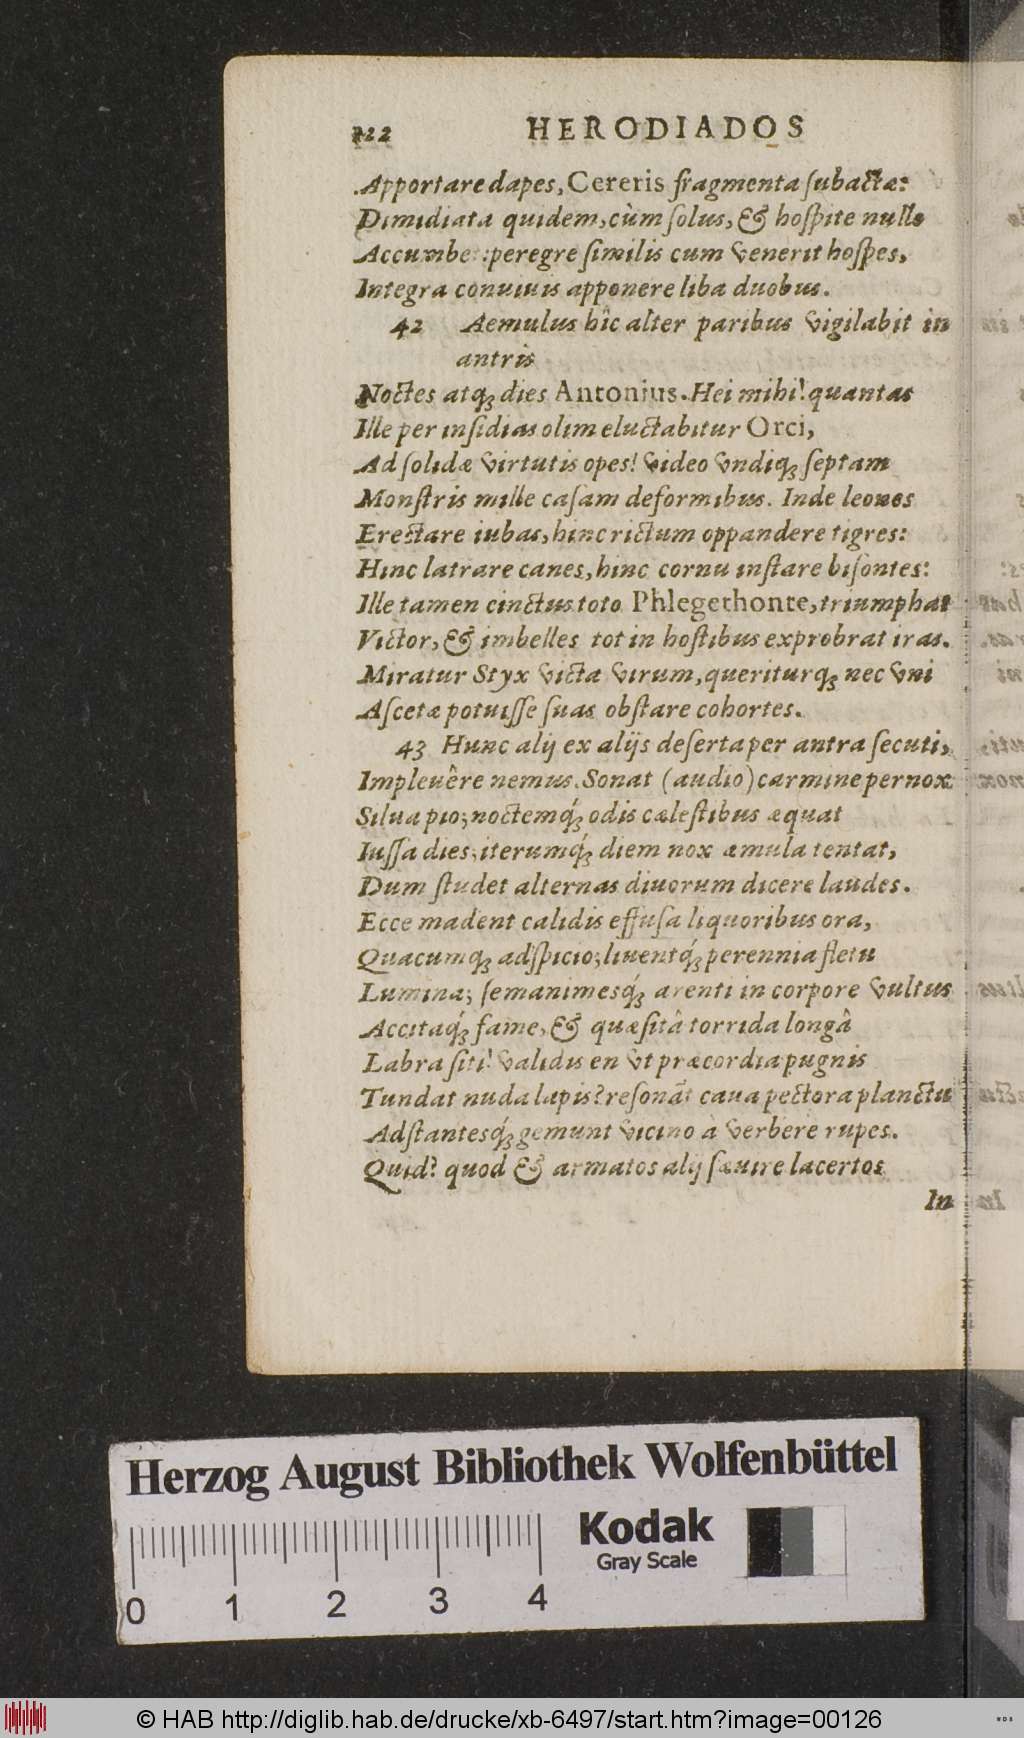 122 HERODIADOS
Apportare dapes, Cereris fragmenta subactæ:
Dimidiata quidem, cùm solus, & hospite nullo
Accumbet: peregre similis cum venerit hospes,
Integra conuiuis apponere liba duobus.
42 Aemulus hîc alter paribus vigilabit in
antris
Noctes atq; dies Antonius. Hei mihi! quantas
Ille per insidias olim eluctabitur Orci,
Ad solidæ virtutis opes! video vndiq; septam
Monstris mille casam deformibus. Inde leones
Erectare iubas, hinc rictum oppandere tigres:
Hinc latrare canes, hinc cornu instare bisontes:
Ille tamen cinctus toto Phlegethonte, triumphat
Victor, & imbelles tot in hostibus exprobrat iras.
Miratur Styx victa virum, queriturq; nec vni
Ascetæ potuisse suas obstare cohortes.
43 Hunc alij ex alijs deserta per antra secuti,
Impleuêre nemus. Sonat (audio) carmine pernox
Silua pio; noctemq́; odis cælestibus æquat
Iussa dies; iterumq́; diem nox æmula tentat,
Dum studet alternas diuorum dicere laudes.
Ecce madent calidis effusa liquoribus ora,
Quacumq; adspicio; liuentq́; perennia fletu
Lumina; semanimesq́; arenti in corpore vultus
Accitaq́; fame, & quæsitâ torrida longâ
Labra siti! validis en vt præcordia pugnis
Tundat nuda lapis? resonãt caua pectora planctu
Adstantesq́; gemunt vicino à verbere rupes.
Quid? quod & armatos alij sæuire lacertos
In
Herzog August Bibliothek Wolfenbüttel
Kodak
Gray Scale
0 1 2 3 4
© HAB http://diglib.hab.de/drucke/xb-6497/start.htm?image=00126